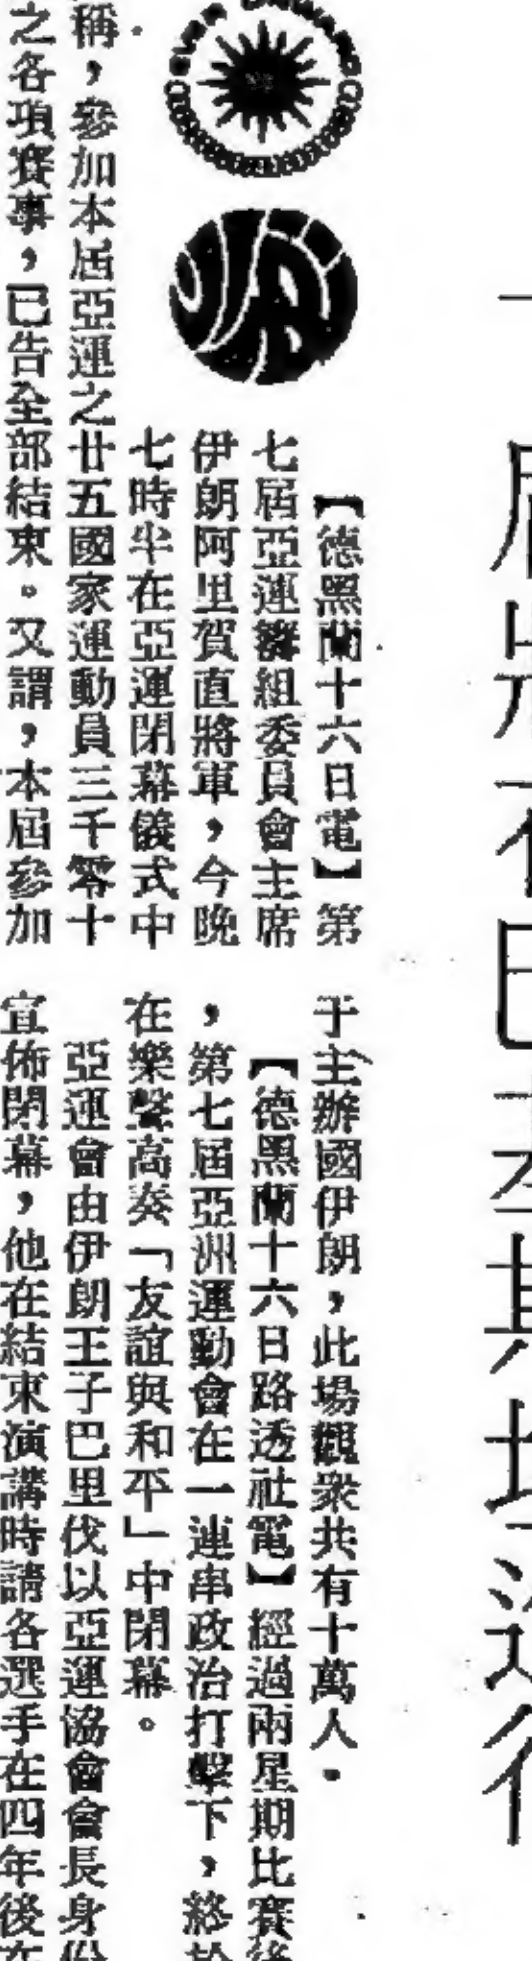 【德黑蘭十六日電】第
七屆亞運籌組委員會主席
伊朗阿里賀直將軍，今晚
七時半在亞運閉幕儀式中
稱，參加本屆亞運之廿五國家運動員三千零十
之各項賽事，已告全部結束。又謂，本屆參加
于主辦國伊朗，此場觀衆共有十萬人．
【德黑蘭十六日路透社電】經過兩星期比賽後
，第七屆亞洲運動會在一連串政治打擊下，終於
在樂聲高奏「友誼與和平」中閉幕。
亞運會由伊朗王子巴里伐以亞運協會會長身份
宣佈閉幕，他在結束演講時請各選手在四年後在